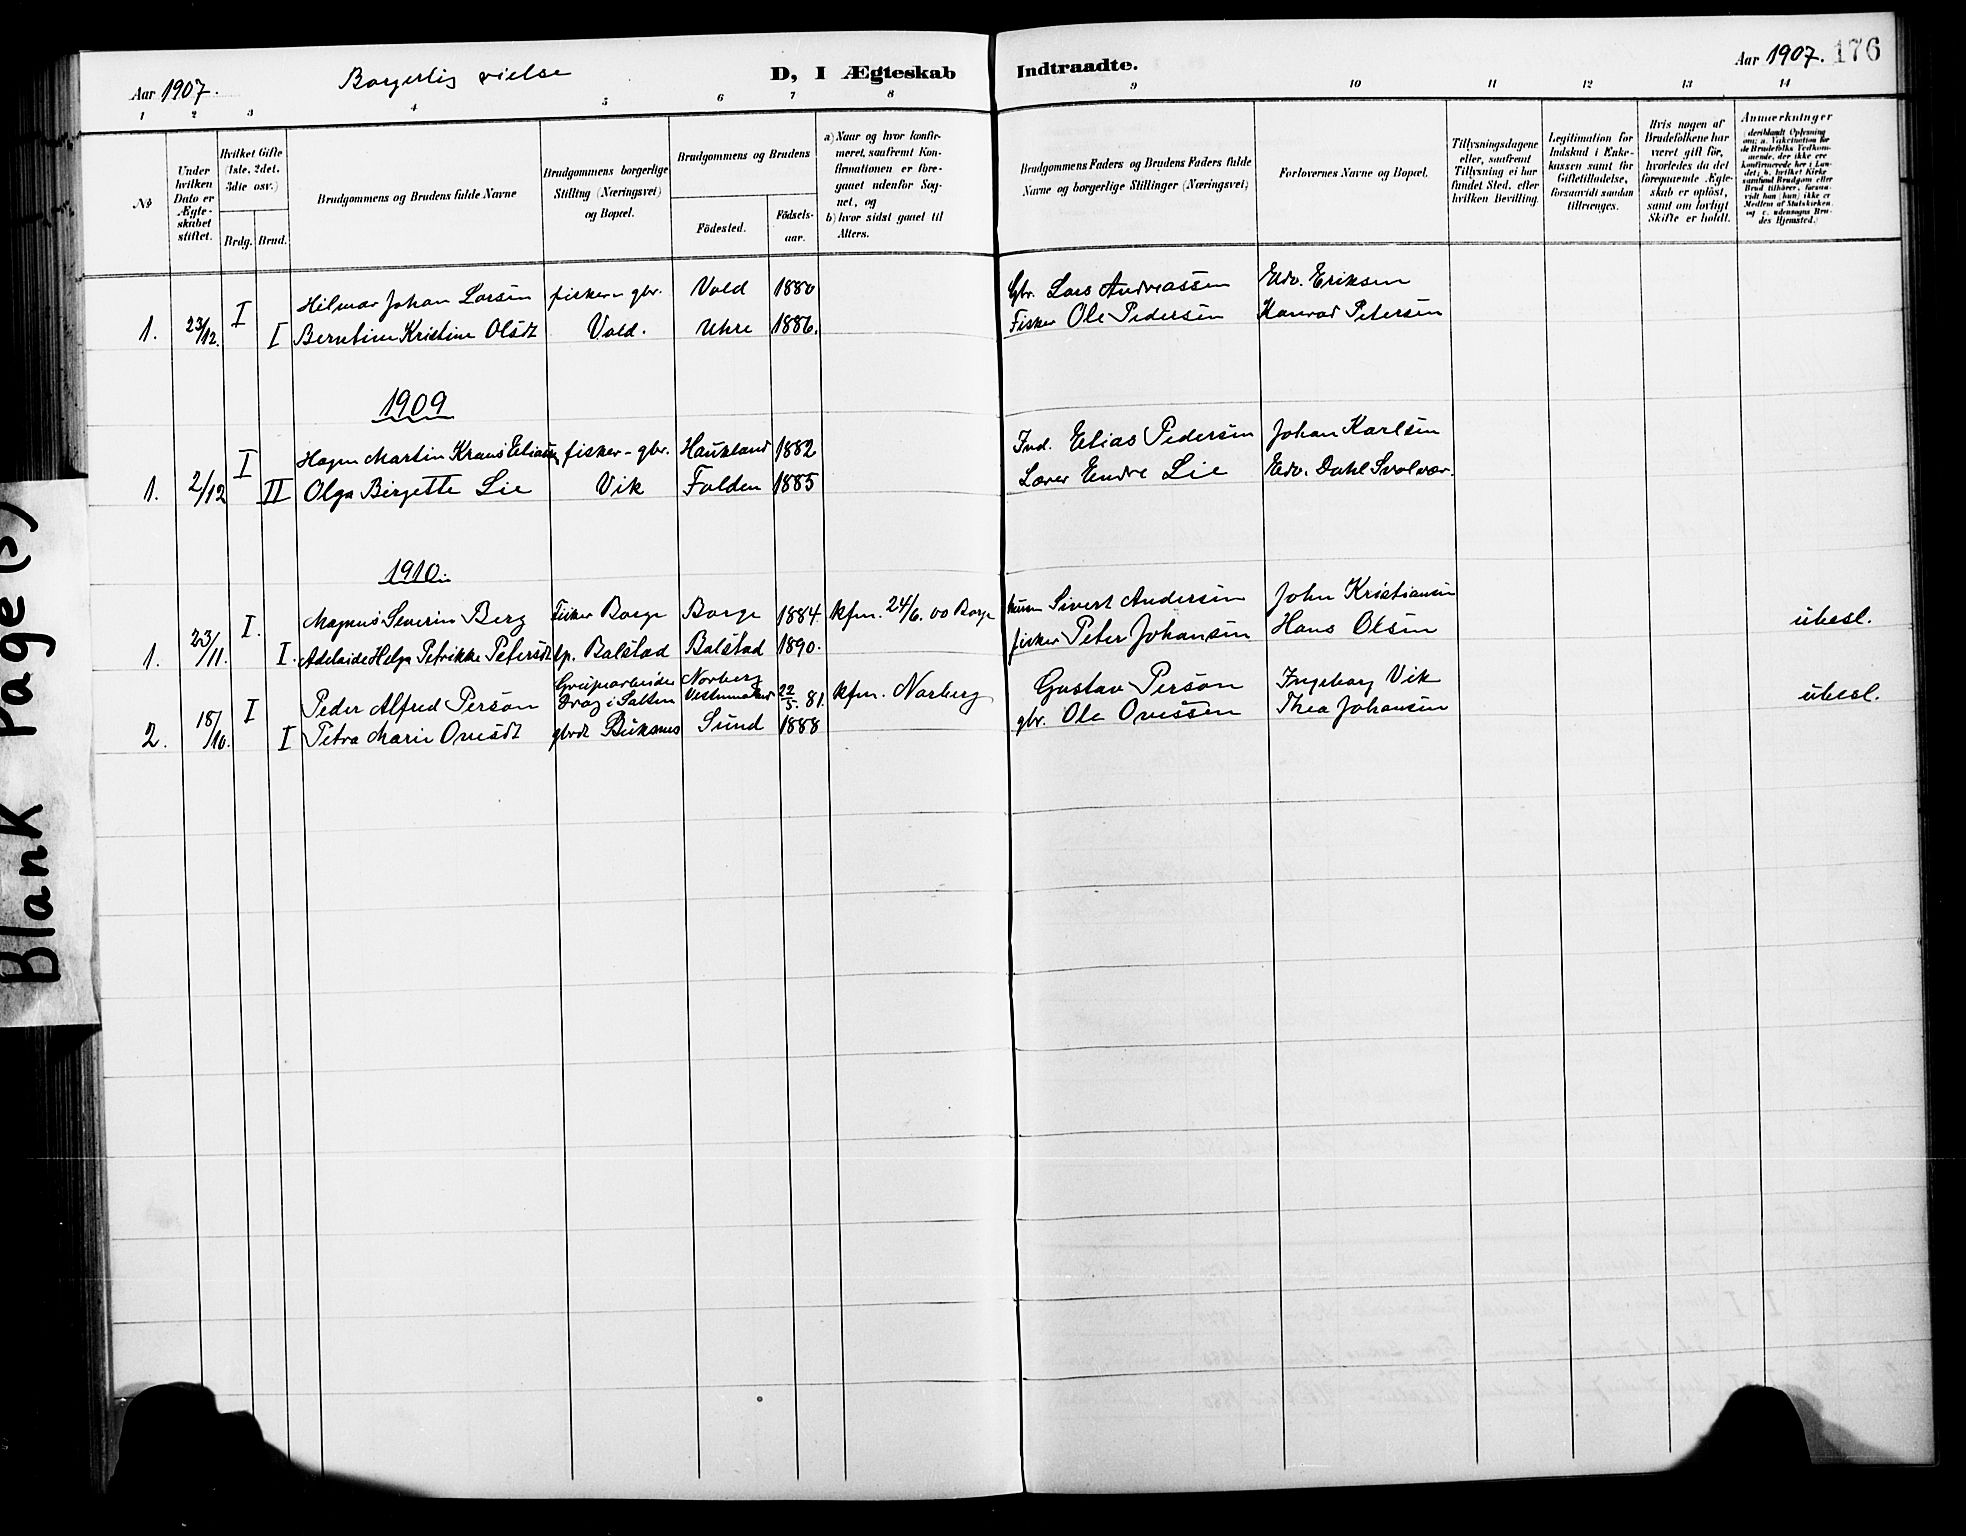 Aar 1907.
Borgerlig vielse
D, I Ægteskab
Indtraadte.
Aar 1907. 176
1 2 3 4 5 6 7 8 9 10 11 12 13 14
No
Under hvilken Dato er Ægteskabet stiftet.
Hvilket Gifte (1ste, 2det, 3die osv.)
Brdg. Brud.
Brudgommens og Brudens fulde Navne
Brudgommens borgerlige Stilling (Næringsvei) og Bopæl.
Brudgommens og Brudens
Födested.
Födsels-aar.
a) Naar og hvor konfirmeret, saafremt Konfirmationen er foregaaet udenfor Sognet, og
b) hvor sidst gaaet til Alters.
Brudgommens Faders og Brudens Faders fulde Navne og borgerlige Stillinger (Næringsvei)
Forlovernes Navne og Bopæl.
Tillysningsdagene eller, saafremt Tillysning ei har fundet Sted, efter hvilken Bevilling.
Legitimation for Indskud i Enkekassen samt for Giftetilladelse, forsaavidt saadan tiltrænges.
Hvis nogen af Brudefolkene har været gift før, hvorledes da det foregaaende Ægteskab er opløst, samt om lovligt Skifte er holdt.
Anmærkninger
(deriblandt Oplysning om: a. Vakcination for de Brudefolks Vedkommende, der ikke ere konfirmerede her i Landet; b. hvilket Kirkesamfund Brudgom eller Brud tilhører, forsaavidt han (hun) ikke er Medlem af Statskirken, og c. udensogns Brudes Hjemsted.)
I Hilmar Johan Larsen fisker - gbr. Vold 1880 Gbr. Lars Andreassen Edv. Eriksen
1. 23/12. I Berntine Kristine Olsdt Vold. Uhre 1886. Fisker Ole Pedersen Konrad Petersen
1909
I Hagen Martin Kraus Eliasen fisker - gbr. Haukland 1882 Ind. Elias Pedersen Johan Karlsen
1. 2/12 II Olga Birgette Lie Vik Folden 1885 Lærer Endre Lie Edv. Dahl Svolvær.
1910.
I. Magnus Severin Berg Fisker Borge Borge 1884. kfm. 24/6. 00 Borge Sivert Andersen John Kristiansen
1. 23/11. I. Adelaide Helga Petrikke Petersdt Balstad Balstad 1890. fisker Peter Johansen Hans Olsen ubesl.
I Peder Alfred Person Grubearbeider i Salten Norberg 22/5. 81. kfm. Norberg Gustav Person Ingeborg Vik
2. 18/10. I Petra Marie Ovesdt gbrdt Buksnes Sund 1888 gbr. Ole Ovessen Thea Johansen ubesl.
Blank Page(s)